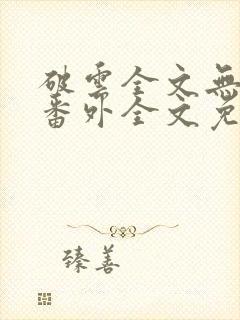 破雲全文無
番外全文免
臻善